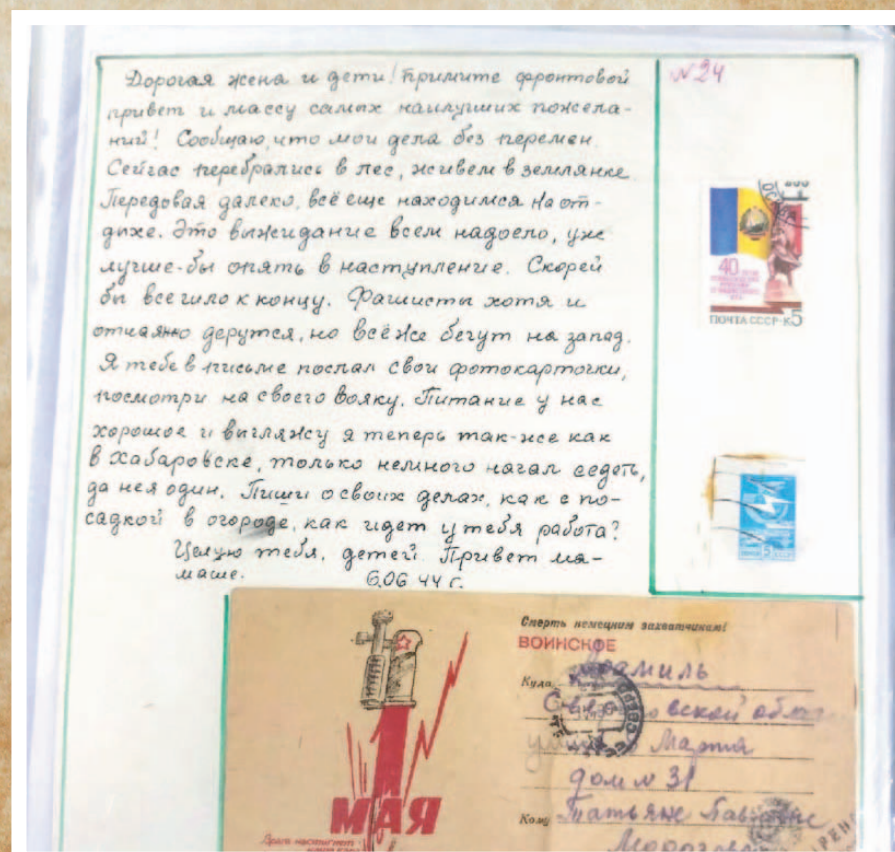 Дорогая жена и дети! Примите фронтовой
привет и массу самых наилучших пожела-
ний! Сообщаю, что мои дела без перемен.
Сейчас перебрались в лес, живем в землянке.
Передовая далеко, всё еще находимся на от-
дыхе. Это выжидание всем надоело, уже
лучше-бы опять в наступление. Скорей
бы все шло к концу. Фашисты хотя и
отчаянно дерутся, но всё же бегут на запад.
Я тебе в письме послал свои фотокарточки,
посмотри на своего вояку. Питание у нас
хорошое и выгляжу я теперь так-же как
в Хабаровске, только немного начал седеть,
да не я один. Пиши о своих делах, как с по-
садкой в огороде, как идет у тебя работа?
Целую тебя, детей. Привет ма-
маше. 6.06 44 г.
№24
40
ПОЧТА СССР·К5
5
Смерть немецким захватчикам!
ВОИНСКОЕ
Куда
Арамиль
области
Марта
дом № 31
Кому Татьяне
1 МАЯ